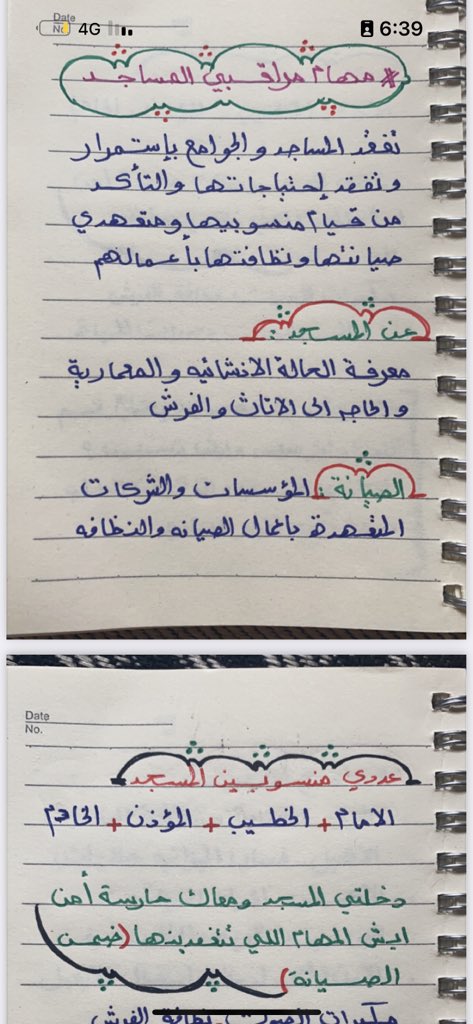 Date
No.
4G
6:39
# مهام مراقبي المساجد
تفقد المساجد و الجوامع بإستمرار
و تفقد إحتياجاتها و التأكد
من قيام منسوبيها و متعهدي
صيانتها و نظافتها بأعمالهم
عن المسجد :
معرفة الحالة الانشائيه و المعمارية
و الحاجه الى الاثاث و الفرش
الصيانة : المؤسسات و الشركات
المتعهدة بأعمال الصيانه والنظافه
Date
No.
عددي منسوبين المسجد
الامام + الخطيب + المؤذن + الخادم
دخلتي المسجد ومعاك حارسة أمن
ايش المهام اللي تتفقدينها (ضمن
الصيانة)
مكبرات الصوت . نظافة الفرش